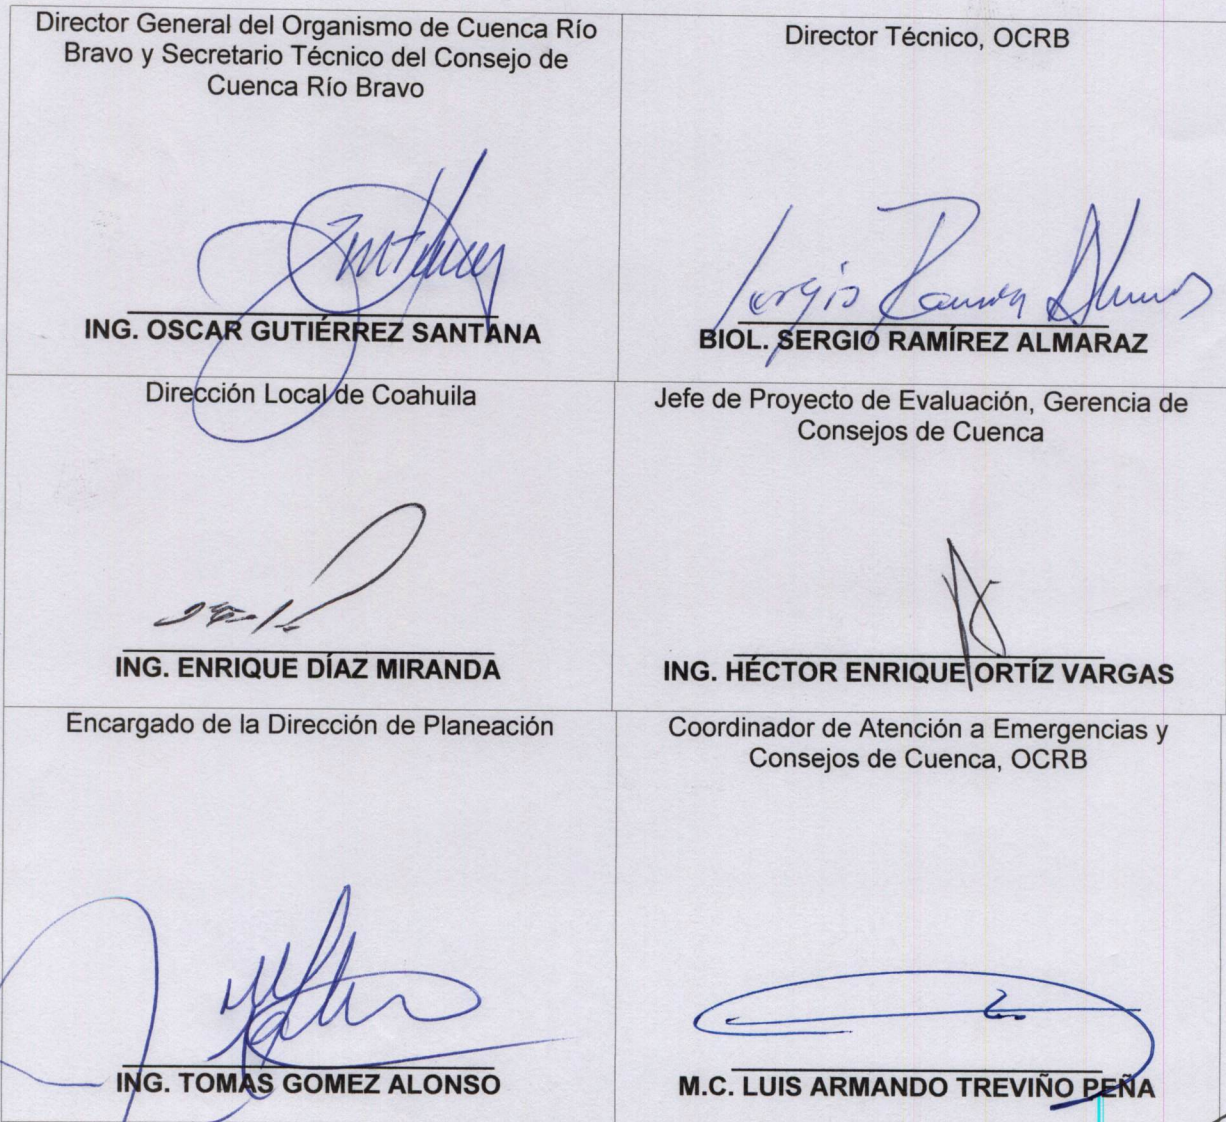 Director General del Organismo de Cuenca Río
Bravo y Secretario Técnico del Consejo de
Cuenca Río Bravo
ING. OSCAR GUTIÉRREZ SANTANA
Director Técnico, OCRB
Sergio Ramírez Almaraz
BIOL. SERGIO RAMÍREZ ALMARAZ
Dirección Local de Coahuila
ING. ENRIQUE DÍAZ MIRANDA
Jefe de Proyecto de Evaluación, Gerencia de
Consejos de Cuenca
ING. HÉCTOR ENRIQUE ORTÍZ VARGAS
Encargado de la Dirección de Planeación
ING. TOMAS GOMEZ ALONSO
Coordinador de Atención a Emergencias y
Consejos de Cuenca, OCRB
M.C. LUIS ARMANDO TREVIÑO PEÑA